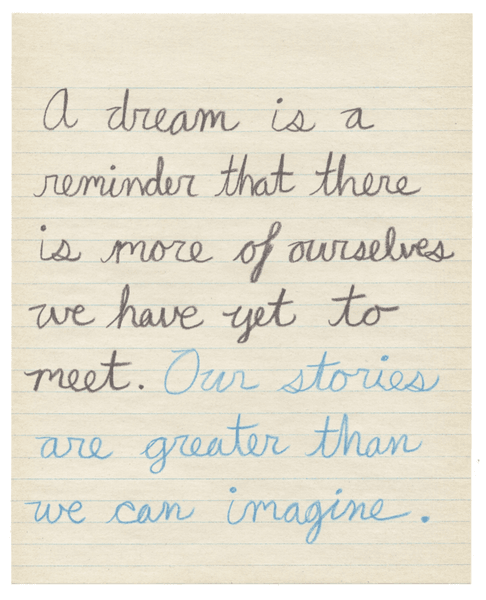 A dream is a
reminder that there
is more of ourselves
we have yet to
meet. Our stories
are greater than
we can imagine.